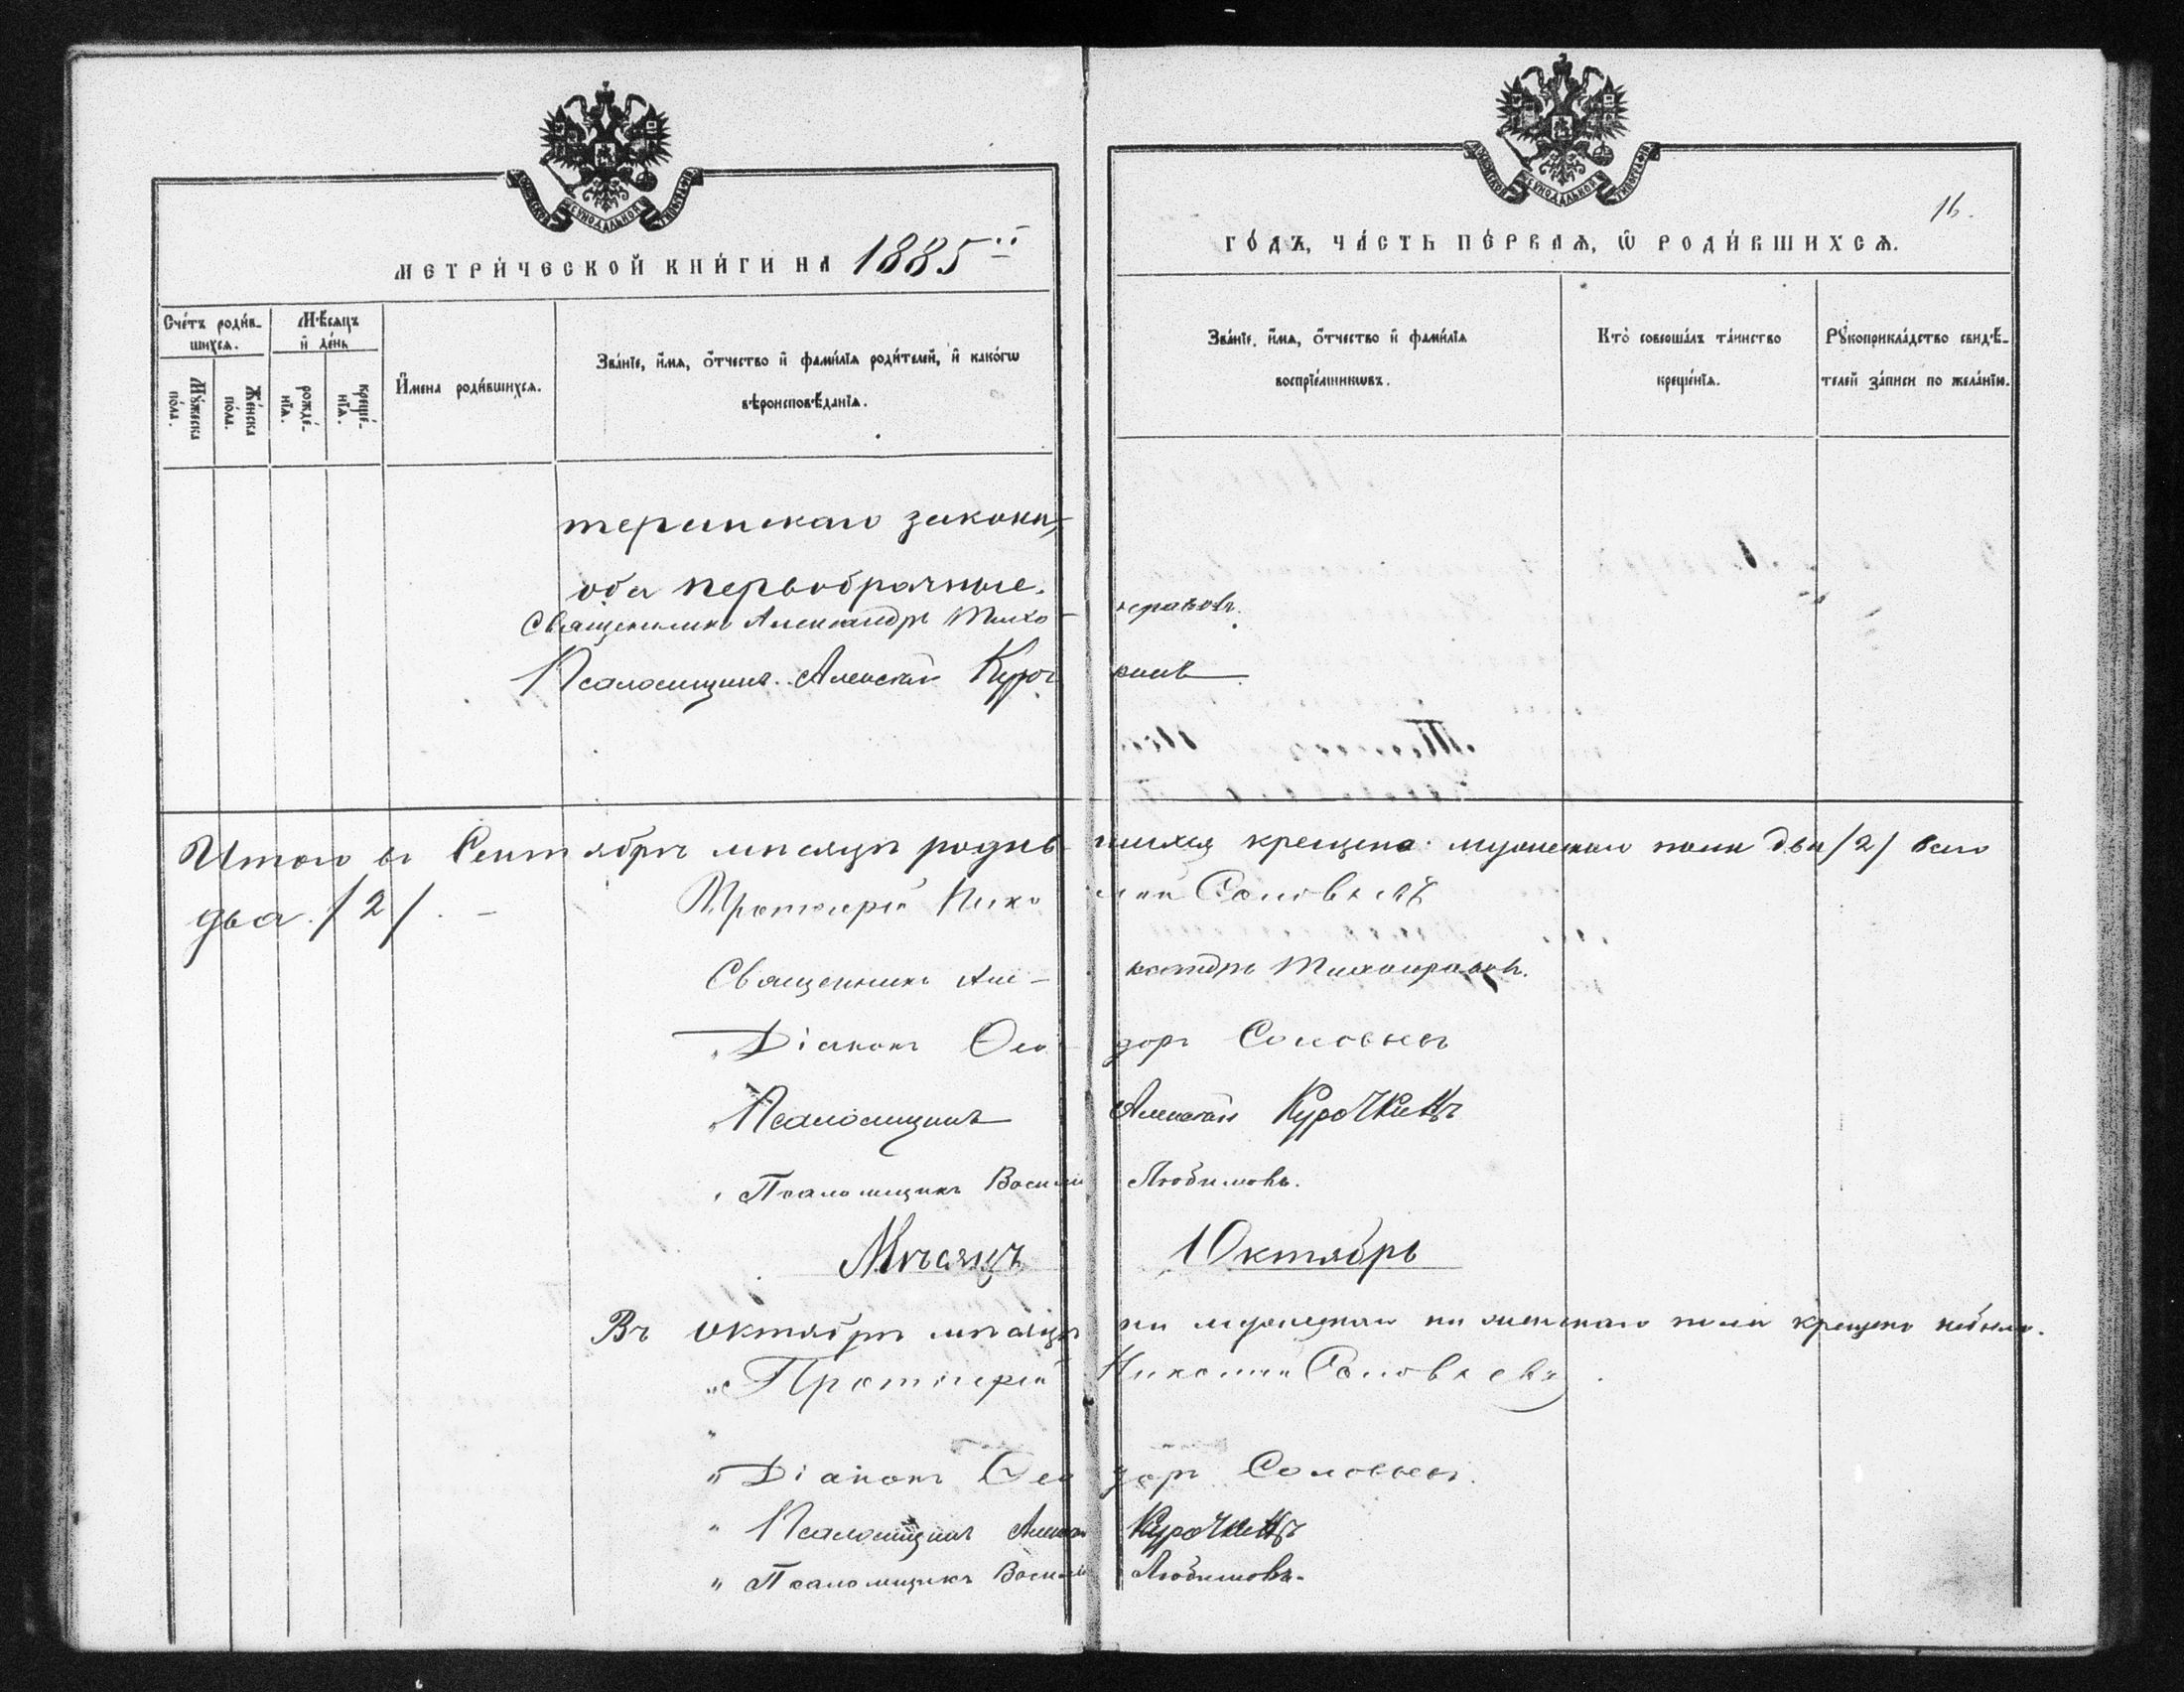 МЕТРИ́ЧЕСКОЙ КНИ́ГИ НА 1885ый
ГО́ДЪ, ЧА́СТЬ ПЕ́РВАѦ, Ѡ РОДИ́ВШИХСѦ.
16.
Сче́тъ роди́в-
шихсѧ.
Мѣ́сѧцъ
и̂ де́нь
Мꙋ́жеска
по́ла.
Же́нска
по́ла.
рожде́-
нїѧ.
креще́-
нїѧ.
И̂мена̀ роди́вшихсѧ.
Зва́нїе, и̂́мѧ, о̂́тчество и̂ фами́лїѧ роди́телей, и̂ како́гѡ
вѣроисповѣ́данїѧ.
Зва́нїе, и̂́мѧ, о̂́тчество и̂ фами́лїѧ
воспрїе́мникѡвъ.
Кто̀ соверша́лъ та́инство
креще́нїѧ.
Рꙋкоприкла́дство свидѣ́-
телей за́писи по жела́нїю.
теранскаго закона,
оба первобрачные.
Священникъ Александръ Тихо-нравовъ.
Псаломщикъ Алексѣй Курочкинъ
Итого въ Сентябрѣ мѣсяцѣ родившихся крещено мужескаго пола два /2/ всего
два /2/. –
Протоіерей Николай Соловьевъ
Священникъ Александръ Тихонравовъ.
„ Діаконъ Ѳеодоръ Соловьевъ
„ Псаломщикъ Алексѣй Курочкинъ
„ Псаломщикъ Василій Любимовъ.
Мѣсяцъ Октябрь
Въ октябрѣ мѣсяцѣ ни мужескаго ни женскаго пола крещено небыло.
„ Протоіерей Николай Соловьевъ.
„
„ Діаконъ Ѳеодоръ Соловьевъ.
„ Псаломщикъ Алексѣй Курочкинъ
„ Псаломщикъ Василій Любимовъ.